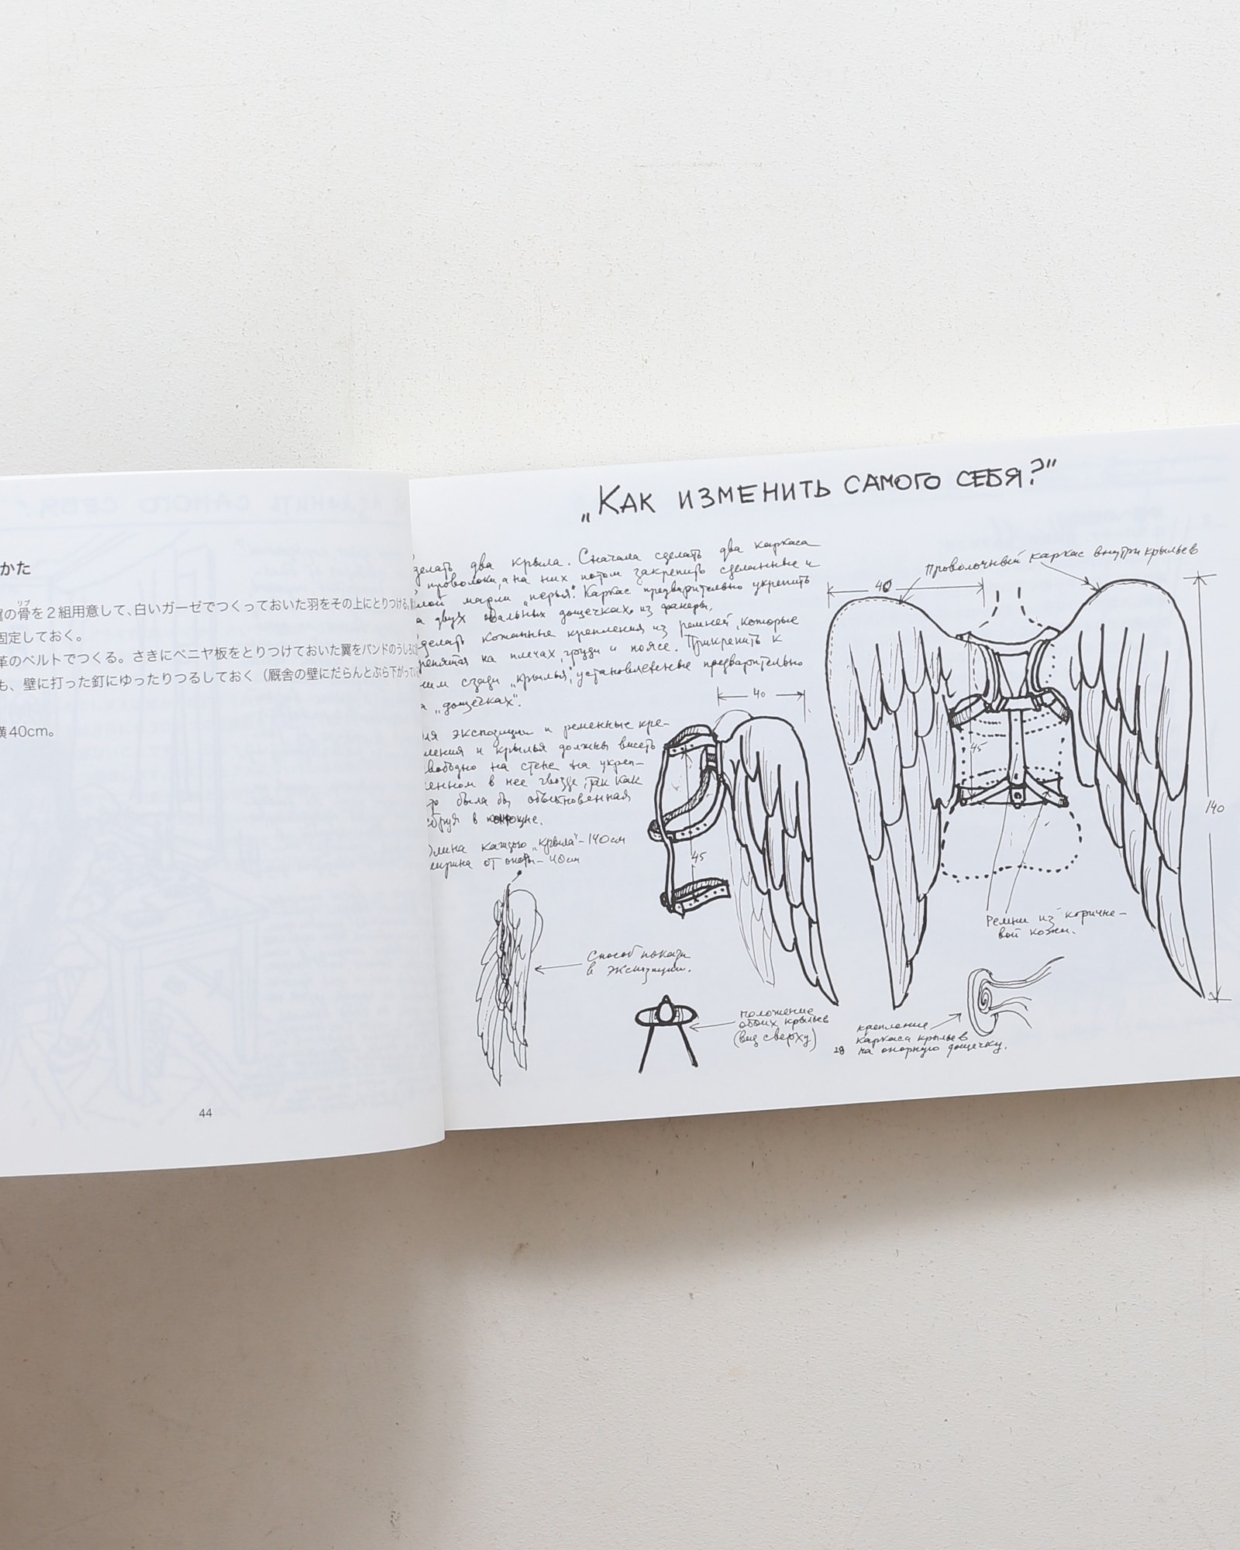 かた
の骨を2組用意して、白いガーゼでつくっておいた羽をその上にとりつける。
リブ
固定しておく。
革のベルトでつくる。さきにベニヤ板をとりつけておいた翼をバンドのうしろに
も、壁に打った釘にゆったりつるしておく(厩舎の壁にだらんとぶら下がって
横40cm。
44
„Как изменить самого себя?"
делать два крыла. Сначала сделать два каркаса
проволоки, а на них потом закрепить сделанные и
лой марли „перья". Каркас предварительно укрепить
а двух овальных дощечках из фанеры.
делать кожаные крепления из ремней, которые
репятся на плечах, груди и поясе. Прикрепить к
ним сзади „крылья", установленные предварительно
а „дощечках".
ля экспозиции и ременные кре-
ления и крылья должны висеть
вободно на стене на укреп-
ленном в нее гвозде, так как
была бы обыкновенная
сбруя в конюшне.
Длина каждого „крыла" - 140 см
ширина от - 40 см
Проволочный каркас внутри крыльев
40
40
45
45
140
Ремни из коричне-
вой кожи.
Способ показа
в экспозиции.
положение
обоих крыльев
(вид сверху)
крепление
каркаса крыльев
на опорную дощечку.
28